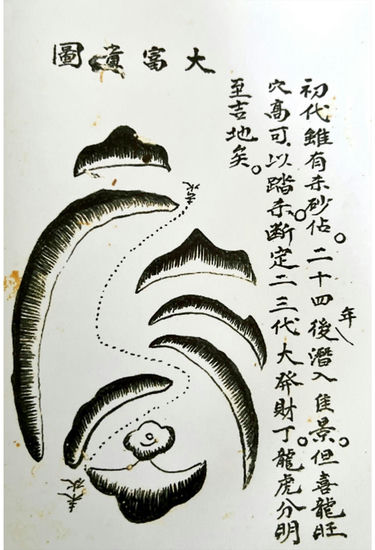 大富貴圖
初代雖有未砂佔。二十四年後潛入佳景。但喜龍旺
穴高可以踏未。斷定二三代大發財丁。龍虎分明
至吉地矣。
去水
来水